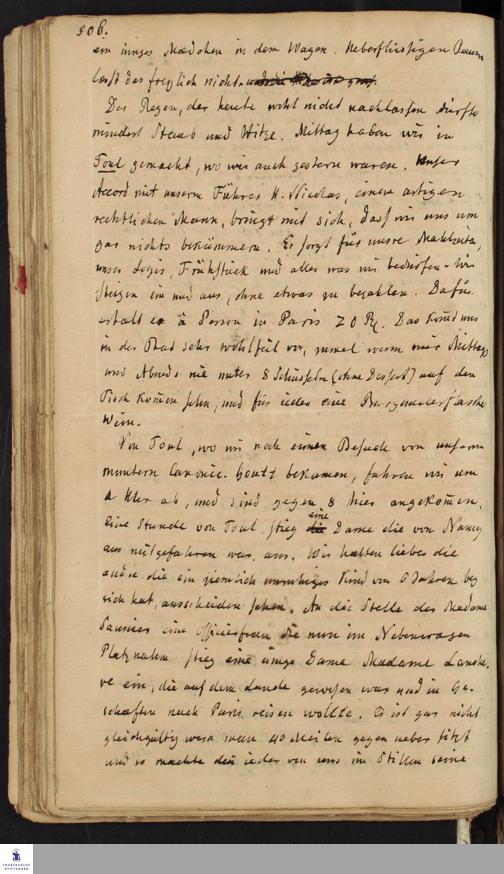 506.
ein junges Mædchen in dem Wagen. Ueberflüssigen Raum
læsst das freylich nicht
Der Regen, der heute wohl nicht nachlassen dürfte
mindert Staub und Hitze. Mittag haben wir in
Toul gemacht, wo wir auch gestern waren. Unser
Accord mit unserm Führer H. Nicolas, einem artigen
rechtlichen Mann, bringt mit sich, dass wir uns um
gar nichts bekümmern. Er sorgt für unsre Mahlzeiten,
unser Logis, Frühstück und alles was wir bedürfen. Wir
steigen ein und aus, ohne etwas zu bezahlen. Dafür
erhält er à Person in Paris 20 Rt. Das kom̄t uns
in der That sehr wohlfeil vor, zumal wenn wir Mittags
und Abends nie unter 8 Schüsseln (ohne Dessert) auf den
Tisch kom̄en sehn, und für jeden eine Burgunderflasche
Wein.
Von Toul, wo wir noch einen Besuch von unserm
muntern Canonic. Goutz bekamen, fuhren wir um
Uhr ab, und sind gegen 8 hier angekom̄en.
Eine Stunde von Toul stieg eine Dame die von Nancy
aus mitgefahren war, aus. Wir hætten lieber die
andre die ein ziemlich unruhiges Kind von 6 Jahren bey
sich hat, ausscheiden sehen. An die Stelle der Madame
Saunier eine Officiersfrau die nun im Nebenwagen
Platz nahm stieg eine junge Dame Madame Lande
ve ein, die auf dem Lande gewesen war und in Ge-
schæften nach Paris reisen wollte. Es ist gar nicht
gleichgültig wen man 40 Meilen gegen ueber sitzt
und so machte den jeder von uns im Stillen seine
FRANCKESCHE
STIFTUNGEN